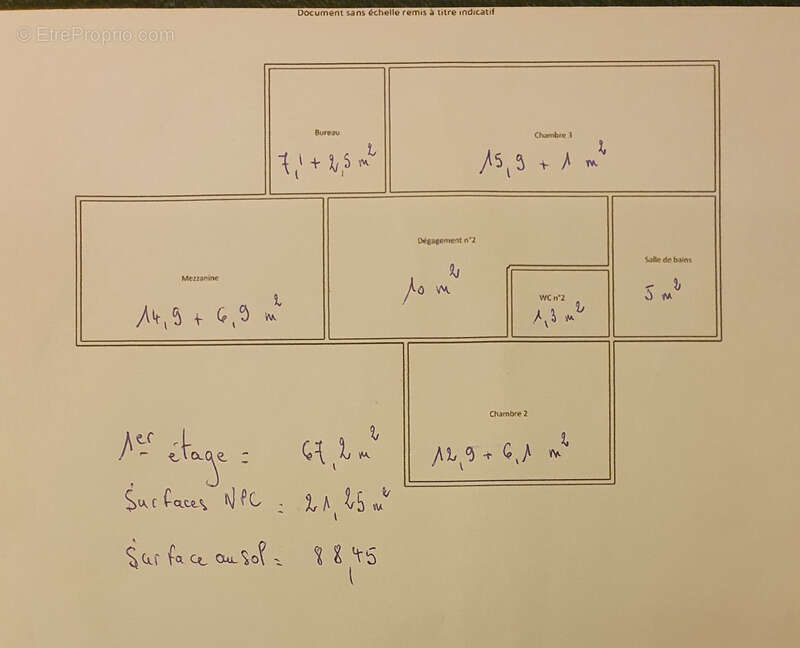 Document sans échelle remis à titre indicatif
© EtreProprio.com
Bureau
7,1 + 2,5 m²
Chambre 3
15,9 + 1 m²
Mezzanine
14,9 + 6,9 m²
Dégagement n°2
10 m²
WC n°2
1,3 m²
Salle de bains
5 m²
Chambre 2
12,9 + 6,1 m²
1er étage = 67,2 m²
Surfaces NPC = 21,25 m²
Surface au sol = 88,45